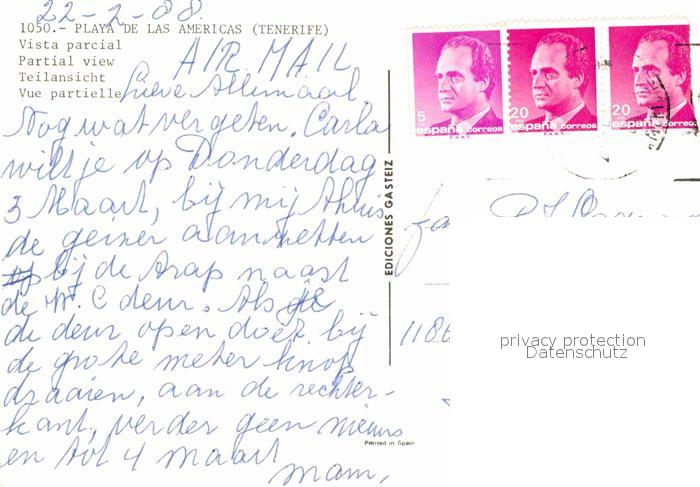 22-2-88.
1050.- PLAYA DE LAS AMERICAS (TENERIFE)
Vista parcial
Partial view
Teilansicht
Vue partielle
AIR MAIL
Lieve Allemaal,
Nog wat vergeten. Carla
wilt je op Donderdag
3 Maart, bij mij thuis
de geiser aanzetten
bij de trap naast
de W.C deur. Als je
de deur open doet bij
de grote meter knop
draaien, aan de rechter-
kant, verder geen nieuws
en tot 4 maart
mam,
Printed in Spain
EDICIONES GASTEIZ
5
españa correos
F.N.M.T.
20
españa correos
F.N.M.T.
20
españa correos
fam
118
privacy protection
Datenschutz